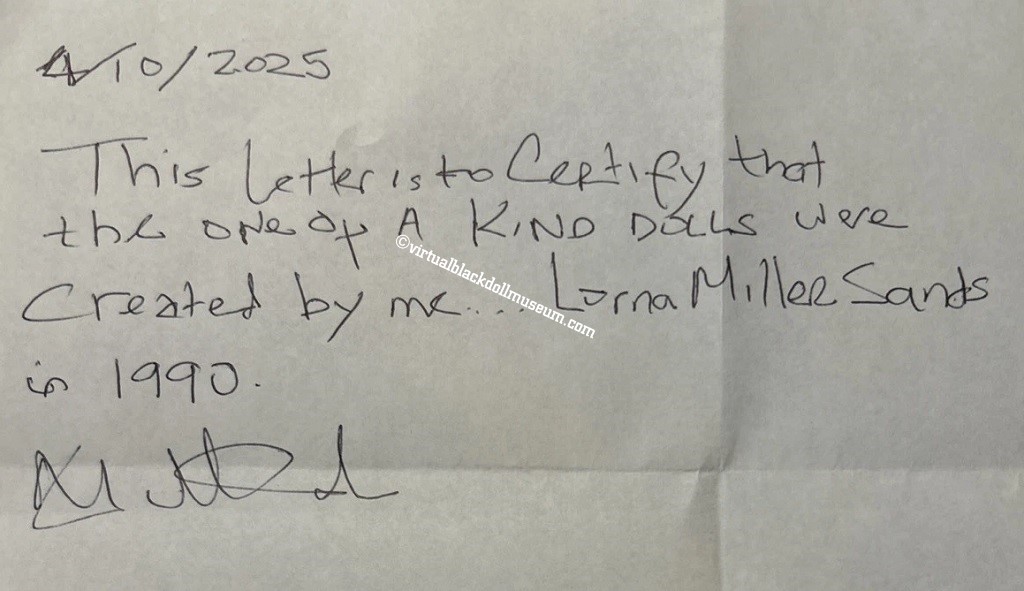 4/10/2025
This letter is to Certify that
the one of A KIND DOLLS were
©virtualblackdollmuseum.com
Created by me... Lorna Miller Sands
in 1990.